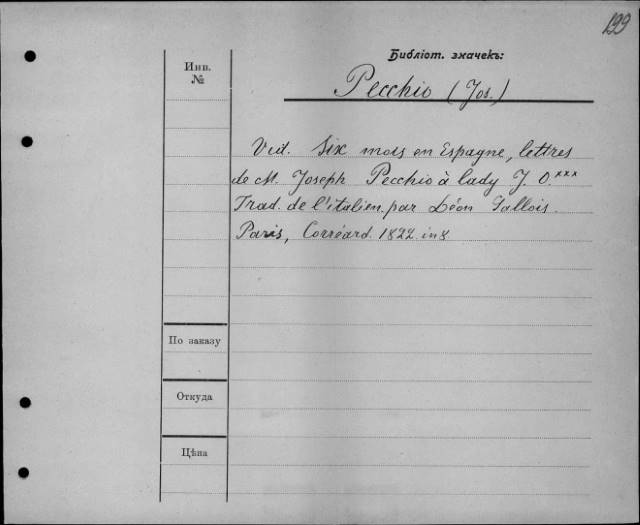 199
Библіот. значекъ:
Инв.
№
Pecchio (Jos.)
Vid. Six mois en Espagne, lettres
de M. Joseph Pecchio à lady J. O.***
Trad. de l'italien par Léon
Paris, Corréard. 1822. in 8.
По заказу
Откуда
Цѣна